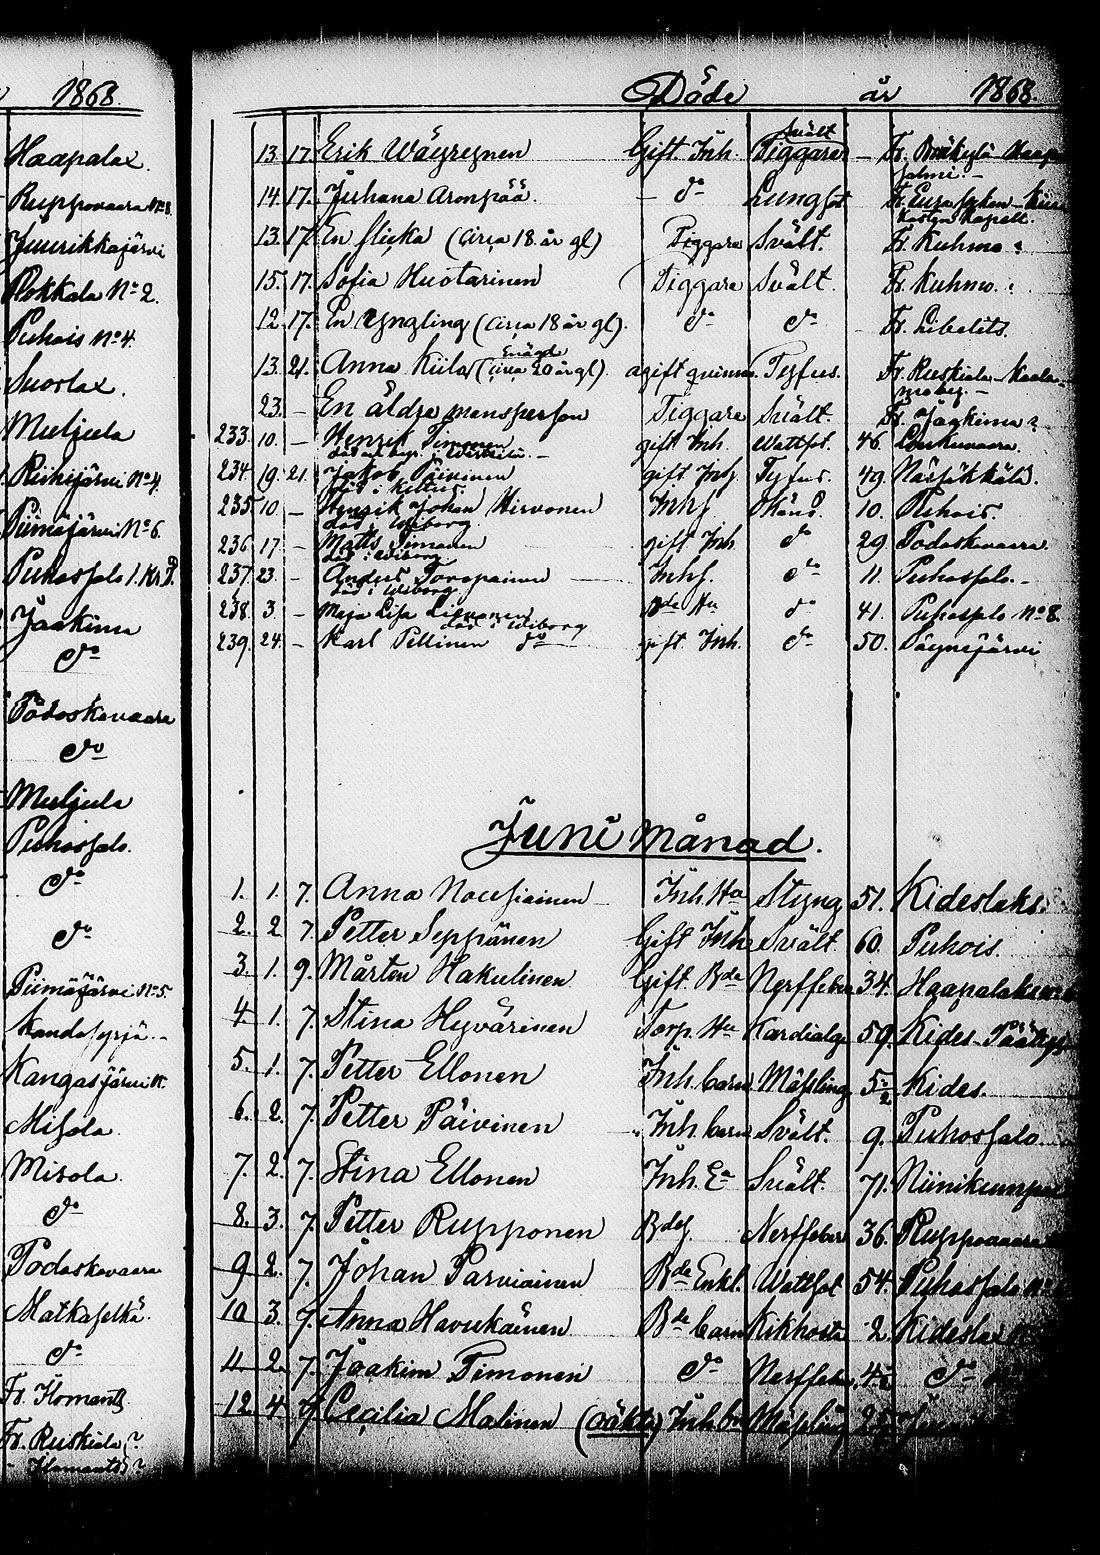 1868.
Haapalax.
Ruppovaara No 8.
Juurikkajärvi
Rokkala No 2.
Puhois No 4.
Suorlax.
Muljula
Riihijärvi No 4.
Piimäjärvi No 6.
Puhossalo 1.
Jaakima
do
Podoskavaara
do
Muljula
Puhossalo.
do
do
Piimäjärvi No 5.
Kangasjärvi
Misola.
Misola.
do
Podoskavaara
Matkaselkä.
do
Fr. Ilomants
Fr. Ruskiala?
- Ilomants?
Döde år 1868.
13. 17. Erik Wäyrynen Gift. Inh. Svält Tiggare – Fr.
14. 17. Juhana Aronpää. – do Lungsot Fr. Kapell.
13. 17. En flicka (circa 18 år gl) Tiggare Svält. Fr. Kuhmo?
15. 17. Sofia Huotarinen Tiggare Svält. Fr. Kuhmo.
12. 17. En Yngling (circa 18 år gl). do do Fr. Libelits.
13. 21. Anna Kiila (circa 20 år gl). ogift qvinna. Tyfus. Fr. Ruskiala
23. – En äldre mansperson Tiggare Svält. Fr. Jaakima?
233. 10. – Henrik Timonen gift Inh. Wattsot. 46.
234. 19. 21. Jakob Päivinen gift Inh. Tyfus. 49.
235 10. – Henrik Johan Hirvonen död i Wiborg. Inhs. Okänd. 10. Puhois.
236. 17 – Matts Timonen död i Wiborg gift Inh do 29 Podoskavaara.
237. 23. – Anders Toropainen död i Wiborg Inhs. do 11. Puhossalo.
238. 3. – Maja Lisa död i Wiborg Bde Hu do 41. Puhossalo No 8.
239. 24. – Karl Pellinen do gift Inh. do 50.
Juni månad.
1. 1. 7. Anna Nousiainen Inh. Hu Styng 51. Kideslaks.
2. 2 7. Petter Seppänen Gift Inh. Svält 60. Puhois.
3. 1. 9. Mårten Hakulinen Gift Bde Nerffeber 34. Haapalaks
4 1. 7. Stina Hyvärinen Torp. Hu Kardialgi 59. Kides
5. 1. 7. Petter Ellonen Inh. barn Mässling 5/2 Kides.
6. 2. 7. Petter Päivinen Inh. barn Svält. 9. Puhossalo
7. 2. 7. Stina Ellonen Inh. Ea Svält. 71. Niinikumpu
8. 3. 7. Petter Rupponen Bdes. Nerffeber 36. Ruppovaara
9 2. 7. Johan Parviainen Bde Enkl. Wattsot 54. Puhossalo
10 3. 7. Anna Havukainen Bde barn Kikhosta 2 Kideslax
11. 2. 7. Joakim Timonen do Nerffeber do
12. 4. 7. Cecilia Malinen (oäkta) Inh. Mässling